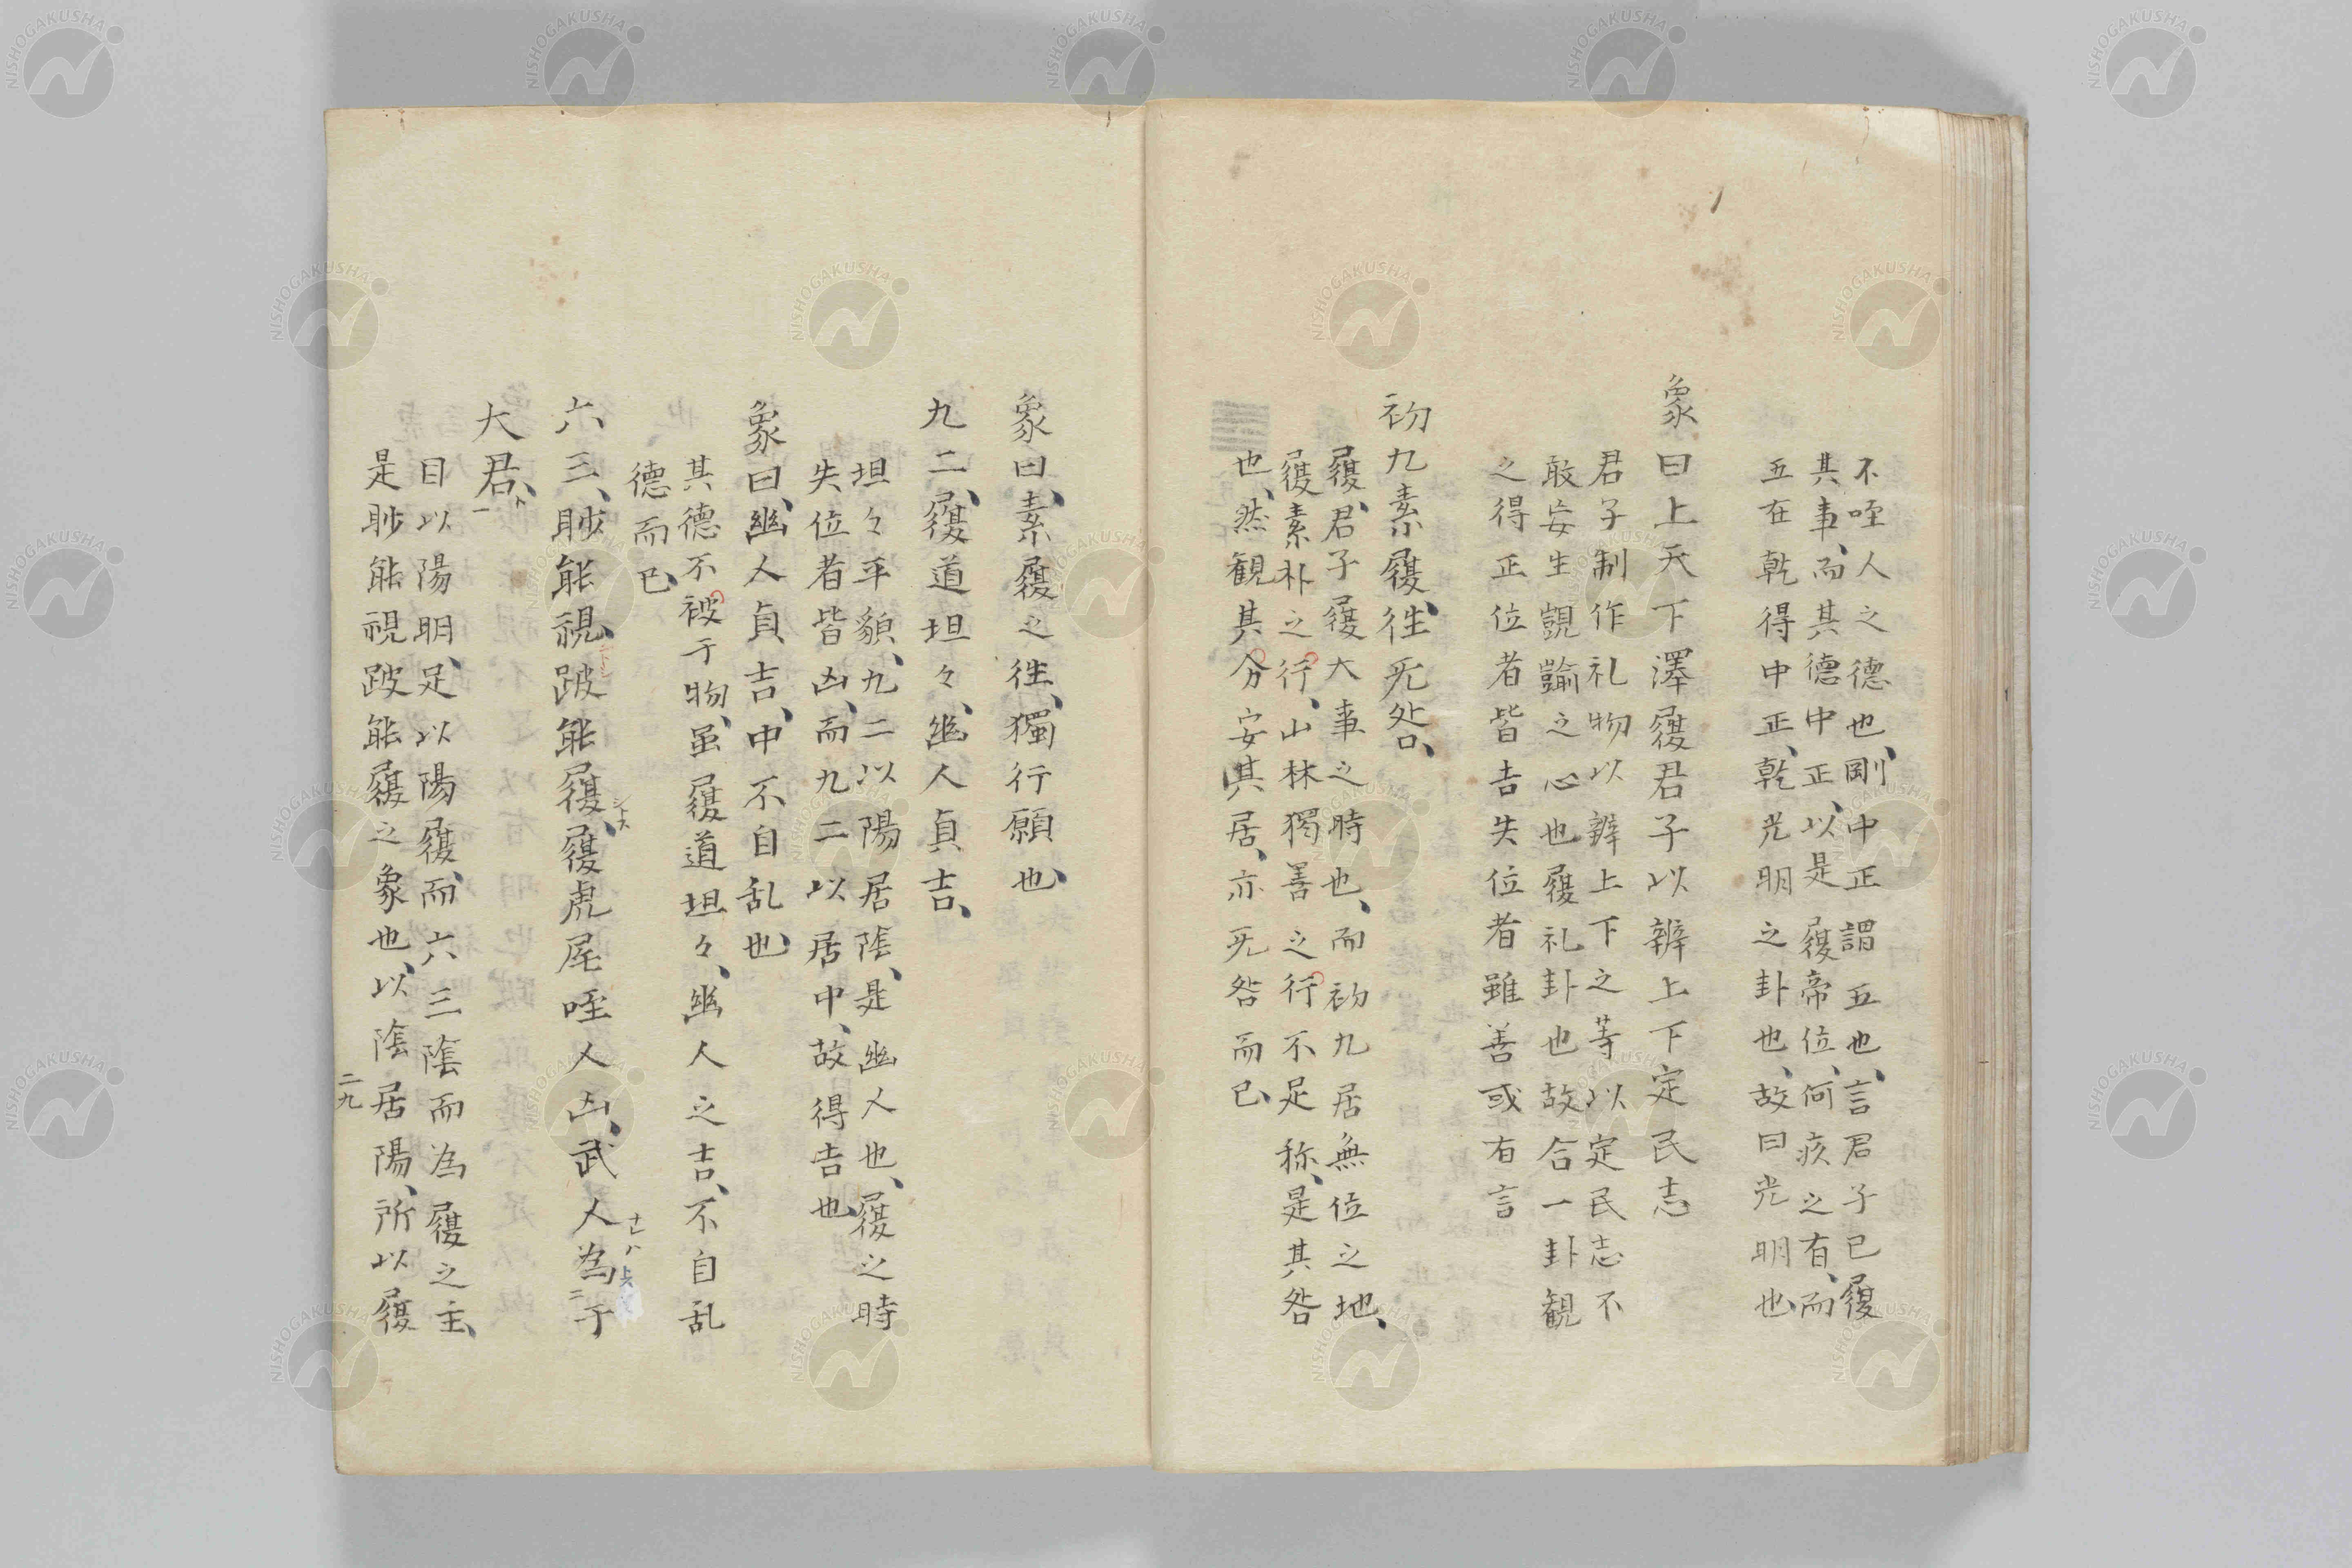 不咥人之德也、剛中正謂五也、言君子已履
其事、而其德中正、以是履帝位、何疚之有、而
五在乾得中正、乾光明之卦也、故曰光明也
象曰上天下澤履君子以辨上下定民志
君子制作礼物以辨上下之等以定民志不
敢妄生覬踰之心也履礼卦也故合一卦観
之得正位者皆吉失位者雖善或有言
初九素履、往旡咎、
履、君子履大事之時也、而初九居無位之地、
履素朴之行、山林獨善之行不足称、是其咎
也、然観其分安其居、亦旡咎而已、
象曰、素履之往、獨行願也、
九二、履道坦々、幽人貞吉、
坦々平貌、九二以陽居陰、是幽人也、履之時
失位者皆凶、而九二以居中、故得吉也、
象曰、幽人貞吉、中不自乱也、
其德不被于物、虽履道坦々、幽人之吉、不自乱
德而已、
六三、眇能視、跛能履、履虎尾咥人凶、武人為于
大君、
目以陽明、足以陽履、而六三陰而為履之主、
是眇能視跛能履之象也、以陰居陽、所以履
二九
NISHOGAKUSHA